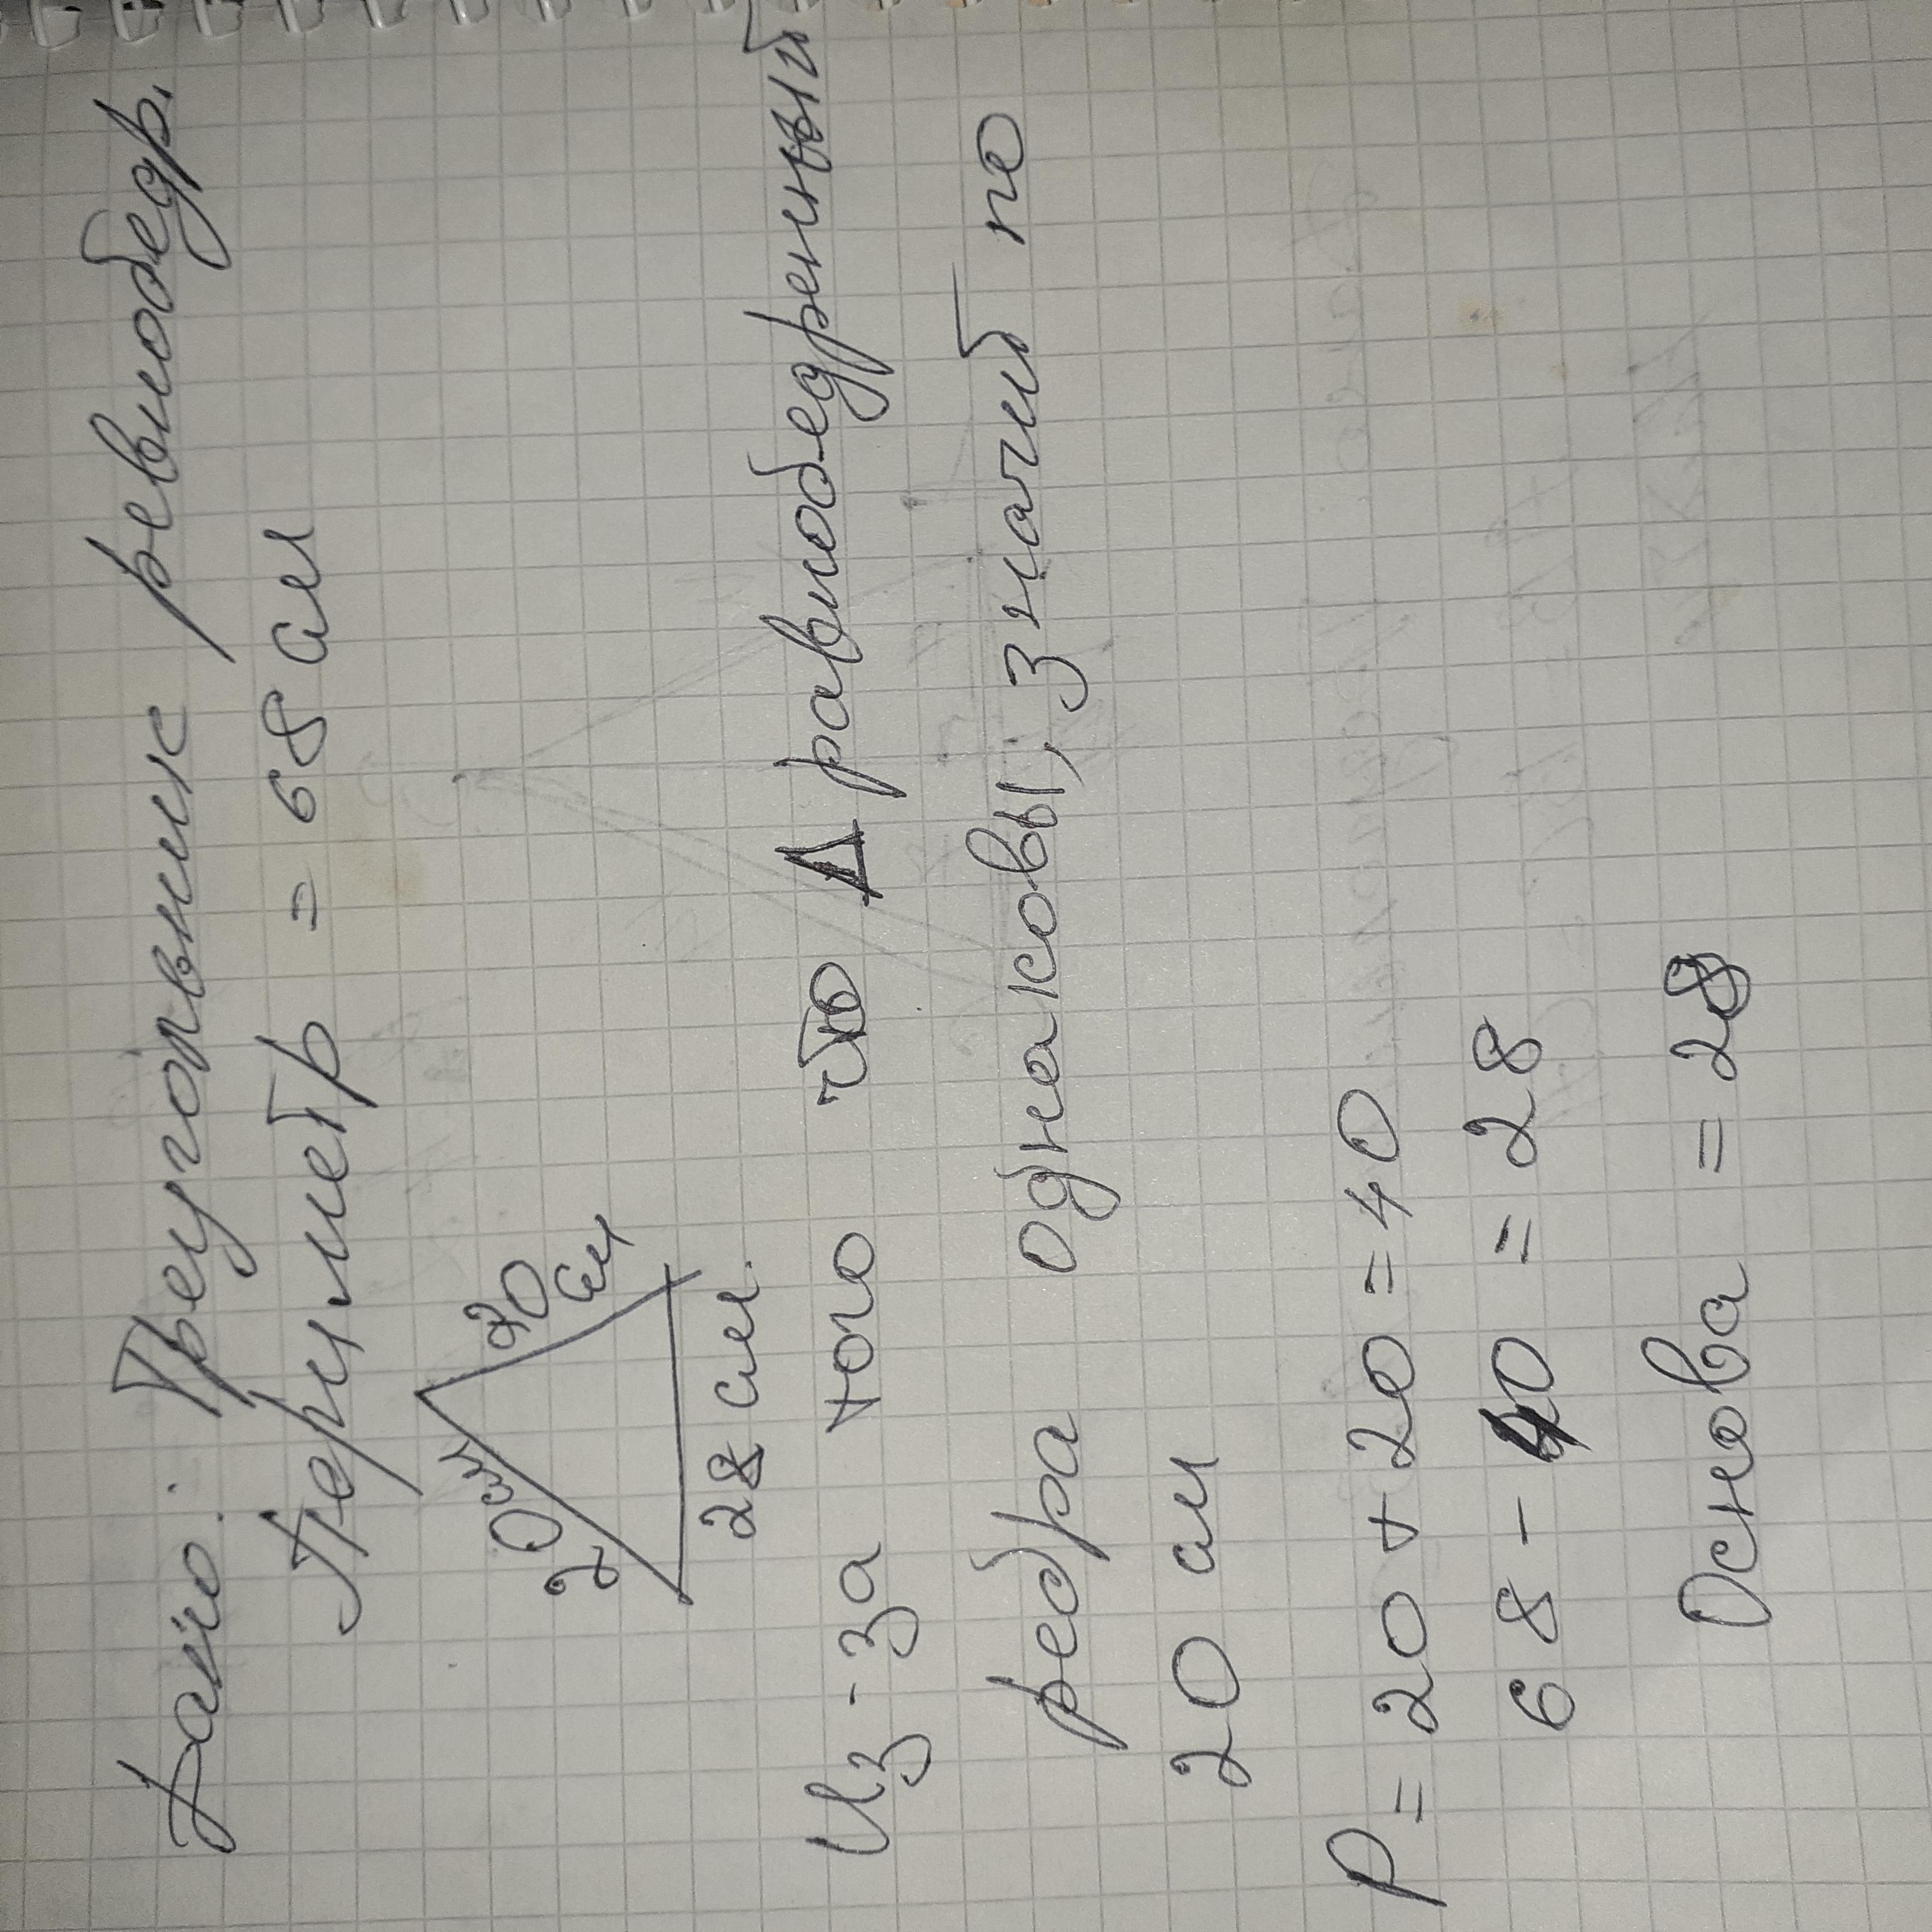 Дано: Треуголвник ревнобедр.
Периметр = 68 см
20 см
20 см
28 см.
Из-за того что Δ равнобедренный
ребра однаковы, значит по
20 см
P = 20 + 20 = 40
68 - 40 = 28
Основа = 28